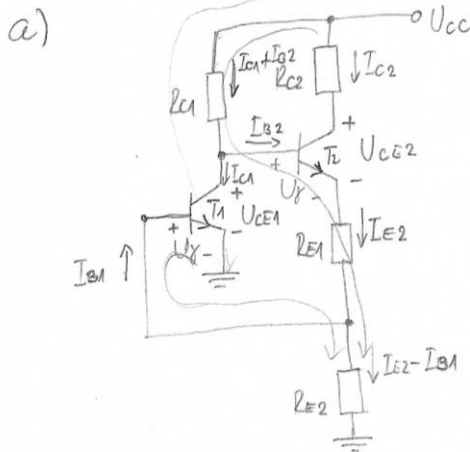 a)
UCC
IC1+IB2
RC1
RC2
IC2
IB2
+
IC1
+
T2
UCE2
Uγ
-
-
+
T1
UCE1
+
Uγ
-
-
IB1
RE1
IE2
IE2-IB1
RE2